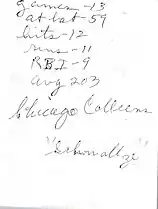 games - 13
at bat - 59
hits - 12
runs - 11
RBI - 9
avg 203
Chicago Colleens
"Schmaltze"